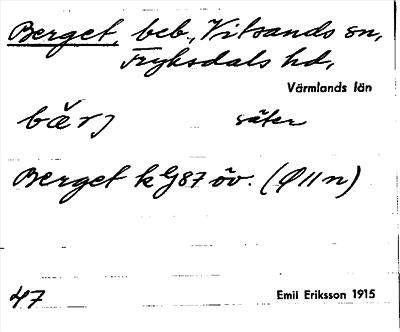 Berget, beb., Vitsands sn,
Fryksdals hd,
Värmlands län
bä̌rj säter
Berget k G87 öv. (Ø 11 n)
47 Emil Eriksson 1915